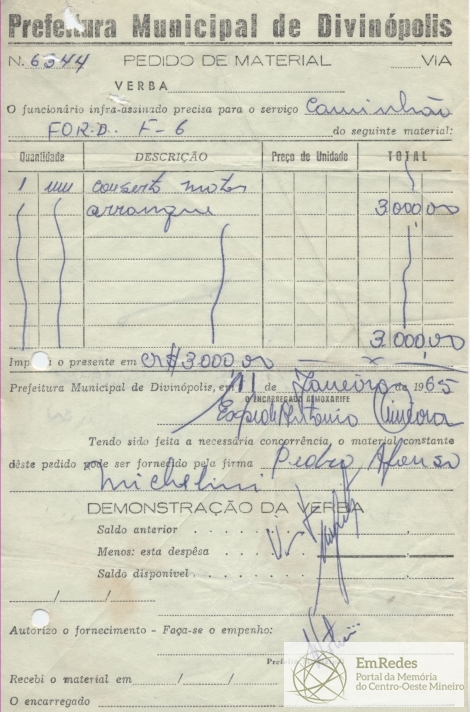 Prefeitura Municipal de Divinópolis
N. 6344 PEDIDO DE MATERIAL VIA
VERBA
O funcionário infra-assinado precisa para o serviço Caminhão
FOR.D. F-6 do seguinte material:
Quantidade DESCRIÇÃO Preço de Unidade TOTAL
1 um conserto motor
arranque 3.000,00
3.000,00
Imp o presente em CR$ 3.000,00
Prefeitura Municipal de Divinópolis, em 11 de Janeiro de 1965
O ENCARREGADO ALMOXARIFE
Antonio
Tendo sido feita a necessária concorrência, o material constante
dêste pedido pode ser fornecido pela firma Pedro Afonso
Michelini
DEMONSTRAÇÃO DA VERBA
Saldo anterior
Menos: esta despêsa
Saldo disponível
Autorizo o fornecimento - Faça-se o empenho:
Recebi o material em
O encarregado
EmRedes
Portal da Memória
do Centro-Oeste Mineiro